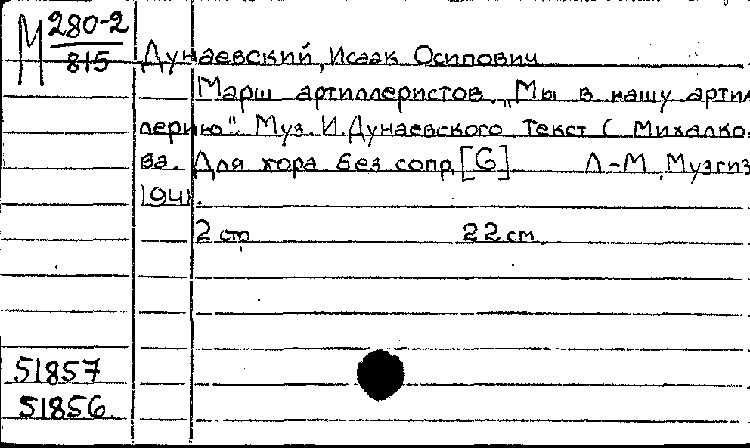 М 280-2
815
Дунаевский, Исаак Осипович
Марш артиллеристов. „Мы в нашу артил
лерию". Муз. И. Дунаевского. Текст С. Михалко
ва. Для хора без сопр. [G]. Л-М, Музгиз
1941.
2 стр. 22 см.
51857
51856